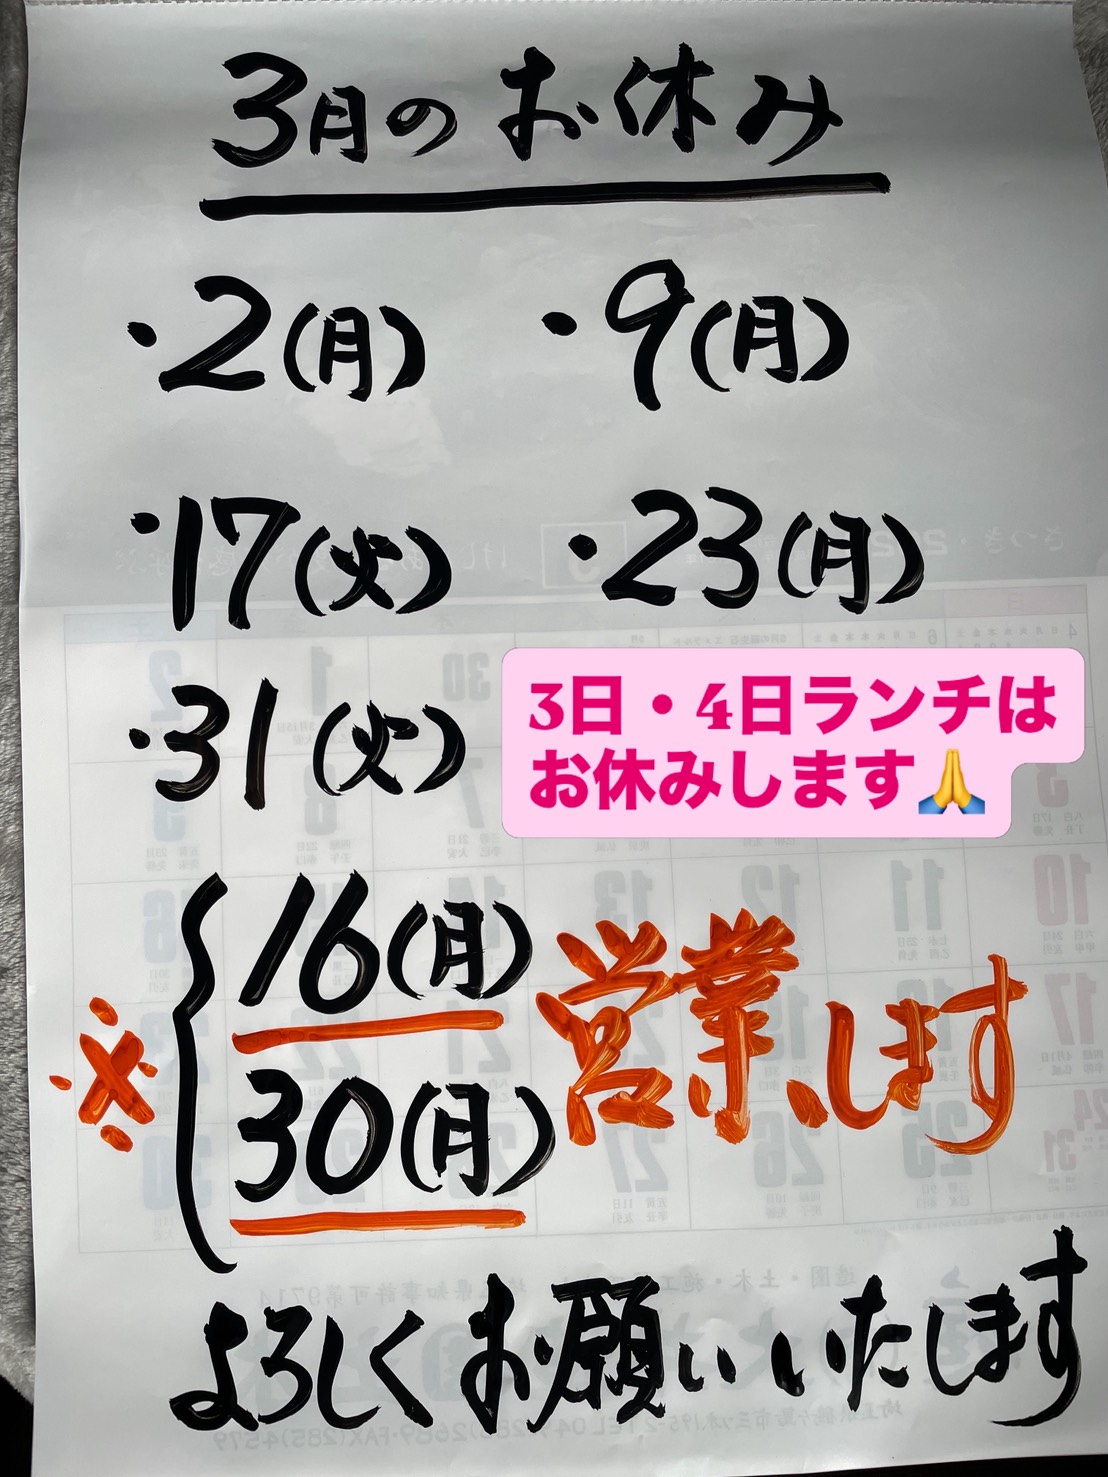 3月のお休み
・2(月) ・9(月)
・17(火) ・23(月)
・31(火)
3日・4日ランチは
お休みします🙏
※ 16(月)
30(月)
営業します
よろしくお願いいたします